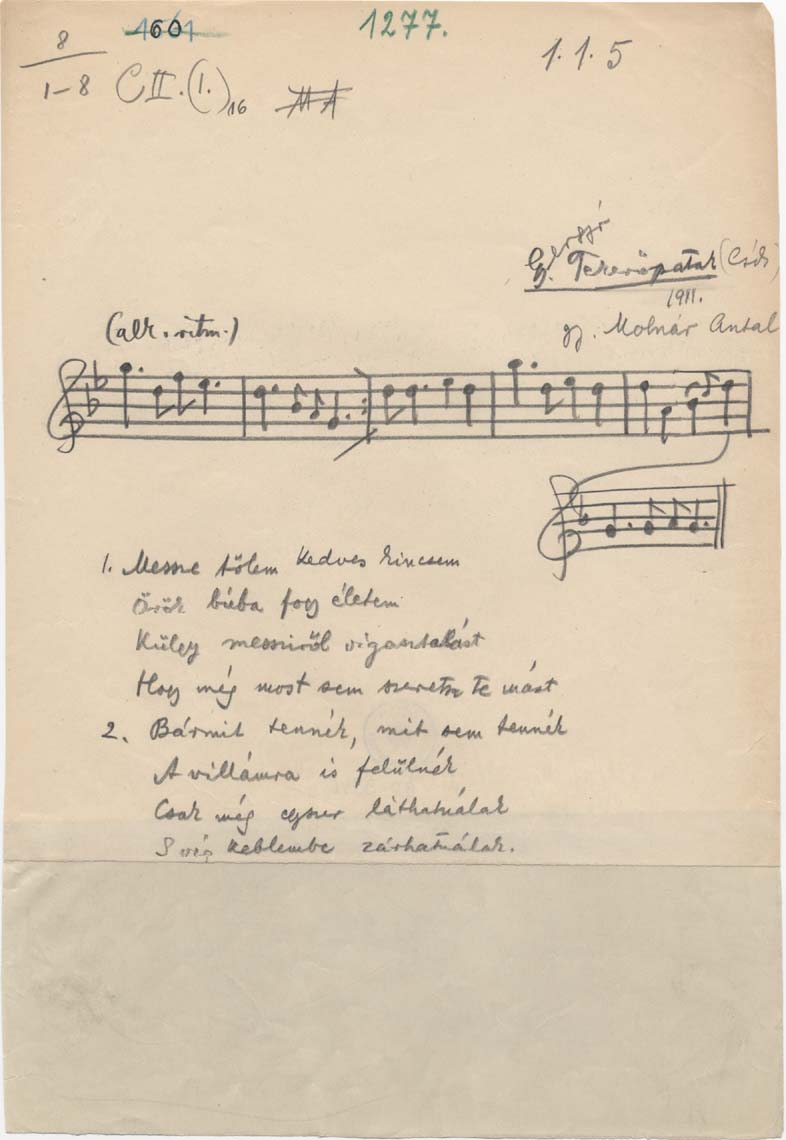 1601 1277.
8
1-8 CII.(1.)16 MA 1.1.5
Gyergyó
Gy. Tekerőpatak (Csík)
1911.
(alk. ritm.) gy. Molnár Antal
1. Messze tőlem kedves kincsem
Örök búba fog életem
Küldj messziről vigasztalást
Hogy még most sem szeretsz te mást
2. Bármit tennék, mit sem tennék
A villámra is felülnék
Csak még egyszer láthatnálak
S még keblembe zárhatnálak.